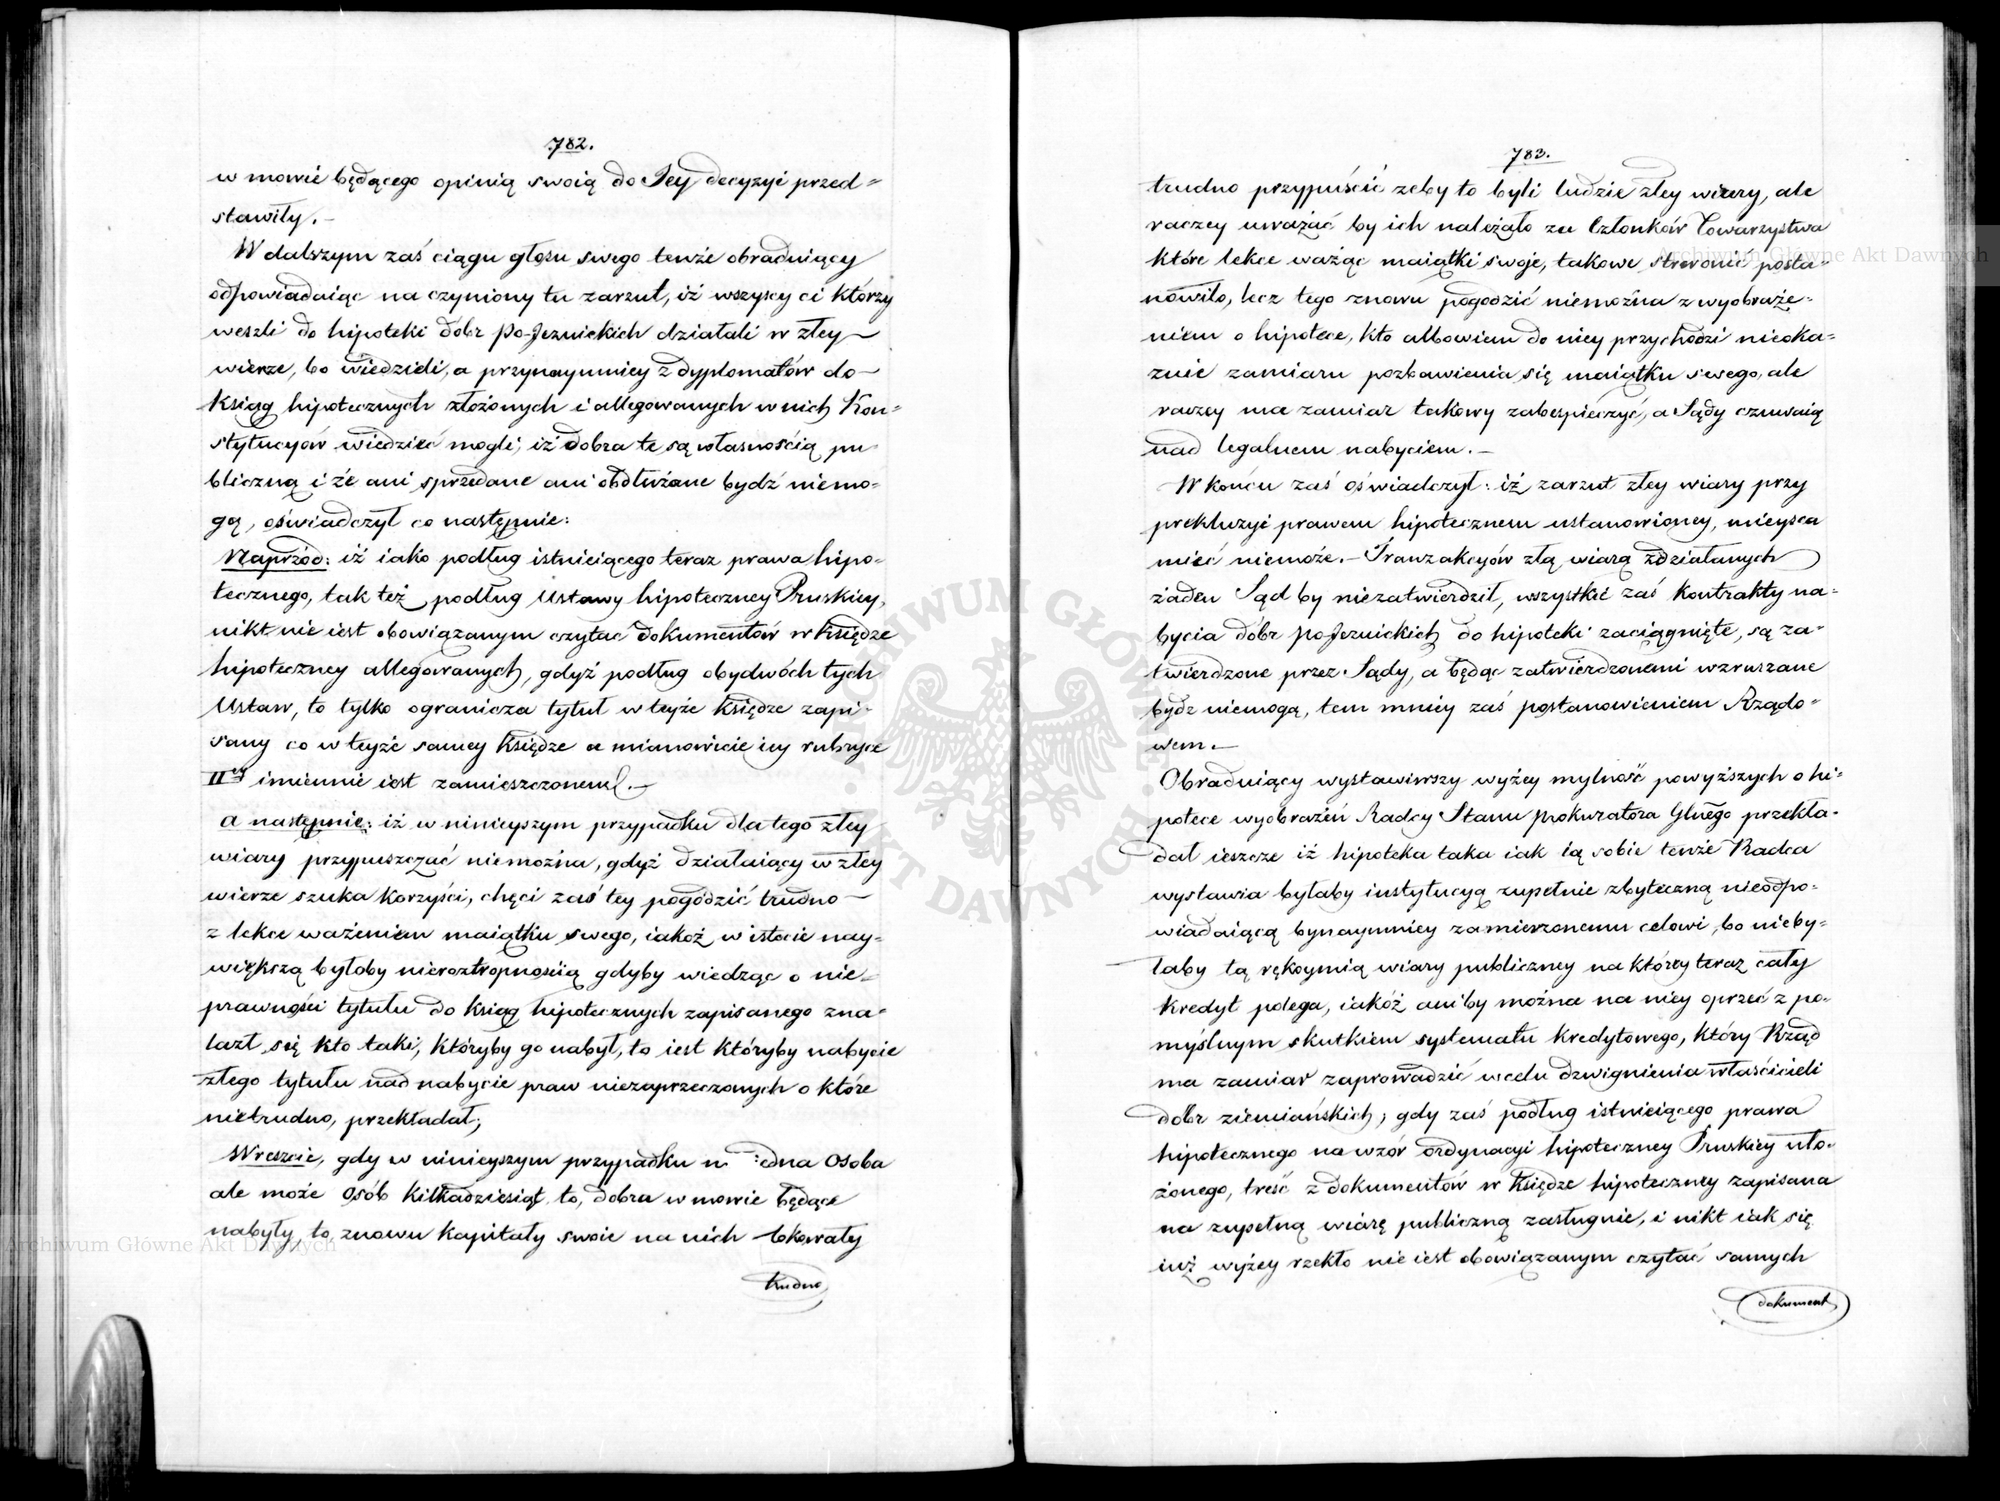 782.
w mowie będącego opinią swoią do Jey decyzyi przed=
stawiły.–
W dalszym zaś ciągu głosu swego tenże obraduiący
odpowiadaiąc na czyniony tu zarzut, iż wszyscy ci którzy
weszli do hipoteki dóbr po-Jezuickich działali w złey
wierze, bo wiedzieli, a przynaymniey z dyplomatów do
Ksiąg hipotecznych złożonych i allegowanych w nich Kon=
stytucyów wiedzieć mogli, iż dobra te są własnością pu
bliczną i że ani sprzedane ani obdłużane bydź niemo=
gą, oświadczył co następnie:
Naprzód: iż iako podług istnieiącego teraz prawa hipo=
tecznego, tak też podług Ustawy hipoteczney Pruskiey,
nikt nie iest obowiązanym czytać dokumentów w Księdze
hipoteczney allegowanych, gdyż podług obydwóch tych
Ustaw, to tylko ogranicza tytuł w teyże Księdze zapi=
sany co w teyże samey Księdze a mianowicie iey rubryce
IIey imiennie iest zamieszczonem.–
a następnie: iż w ninieyszym przypadku dla tego złey
wiary przypuszczać niemożna, gdyż działaiący w złey
wierze szuka korzyści, chęci zaś tey pogodzić trudno
z lekce ważeniem maiątku swego, iakoż w istocie nay=
większą byłoby nieroztropnością gdyby wiedząc o nie=
prawności tytułu do Ksiąg hipotecznych zapisanego zna=
lazł się kto taki, któryby go nabył, to iest któryby nabycie
złego tytułu nad nabycie praw niezaprzeczonych o które
nietrudno, przekładał;
Wreszcie, gdy w ninieyszym przypadku :edna Osoba
ale może Osób Kilkadziesiąt to, dobra w mowie będące
nabyły, to znowu Kapitały swoie na nich lokowały
trudno
783.
trudno przypuścić żeby to byli ludzie złey wiary, ale
raczey uważać by ich należało za Członków Towarzystwa
które lekce ważąc maiątki swoje, takowe strwonić posta=
nowiło, lecz tego znowu pogodzić niemożna z wyobraże=
niem o hipotece, kto albowiem do niey przychodzi nieoka=
zuie zamiaru pozbawienia się maiątku swego, ale
raczey ma zamiar takowy zabespieczyć, a Sądy czuwaią
nad legalnem nabyciem.–
W końcu zaś oświadczył: iż zarzut złey wiary przy
prekluzyi prawem hipotecznem ustanowioney, mieysca
mieć niemoże.– Tranzakcyów złą wiarą zdziałanych
żaden Sąd by niezatwierdził, wszystkie zaś Kontrakty na=
bycia dóbr po-Jezuickich do hipoteki zaciągnięte, są za=
twierdzone przez Sądy, a będąc zatwierdzonemi wzruszane
bydź niemogą, tem mniey zaś postanowieniem Rządo=
wem.–
Obraduiący wystawiwszy wyżey mylność powyższych o hi=
potece wyobrażeń Radcy Stanu Prokuratora Głnego przekła=
dał ieszcze iż hipoteka taka iak ią sobie tenże Radca
wystawia byłaby instytucyą zupełnie zbyteczną nieodpo=
wiadaiącą bynaymniey zamierzonemu celowi, bo nieby=
łaby tą rękoymią wiary publiczney na którey teraz cały
Kredyt polega, iakóż ani by można na niey oprzeć z po=
myślnym skutkiem systematu kredytowego, który Rząd
ma zamiar zaprowadzić w celu dzwignienia właścicieli
dóbr ziemiańskich; gdy zaś podług istnieiącego prawa
hipotecznego na wzór ordynacyi hipoteczney Pruskiey uło=
żonego, treść z dokumentów w Księdze hipoteczney zapisana
na zupełną wiarę publiczną zasługuie, i nikt iak się
iuż wyżey rzekło nie iest obowiązanym czytać samych
dokument
Archiwum Główne Akt Dawnych
Archiwum Główne Akt Dawnych
ARCHIWUM GŁÓWNE
· AKT DAWNYCH ·